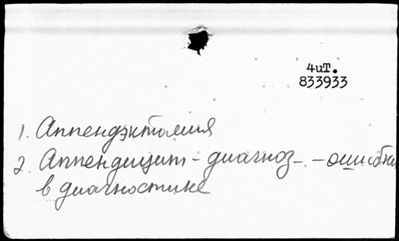 4иТ.
833933
1. Аппендэктомия
2. Аппендицит - диагноз - - ошибки
в диагностике